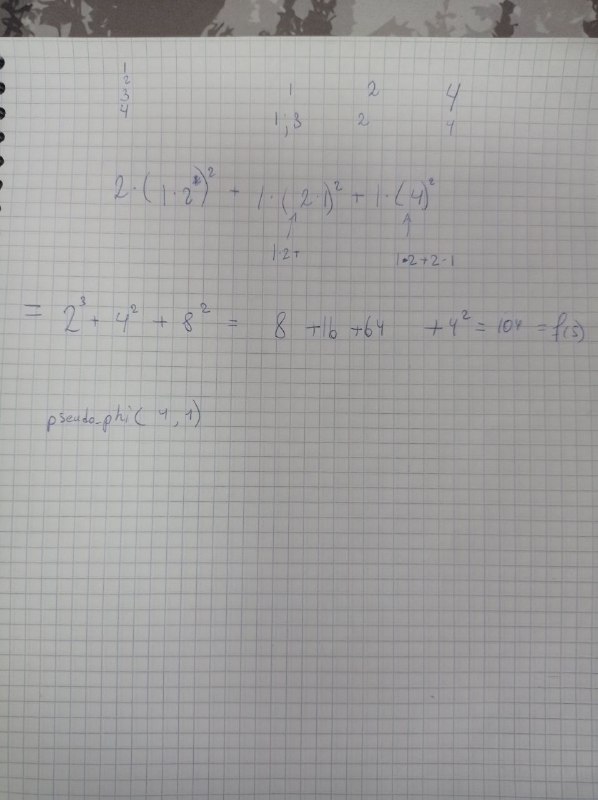 1
2
3
4
1 2 4
1;3 2 4
2·(1·2)² + 1·(2·1)² + 1·(4)²
1·2+ 1·2+2·1
= 2³ + 4² + 8² = 8 +16 +64 +4² = 104 = f(5)
pseudo-phi(4,1)